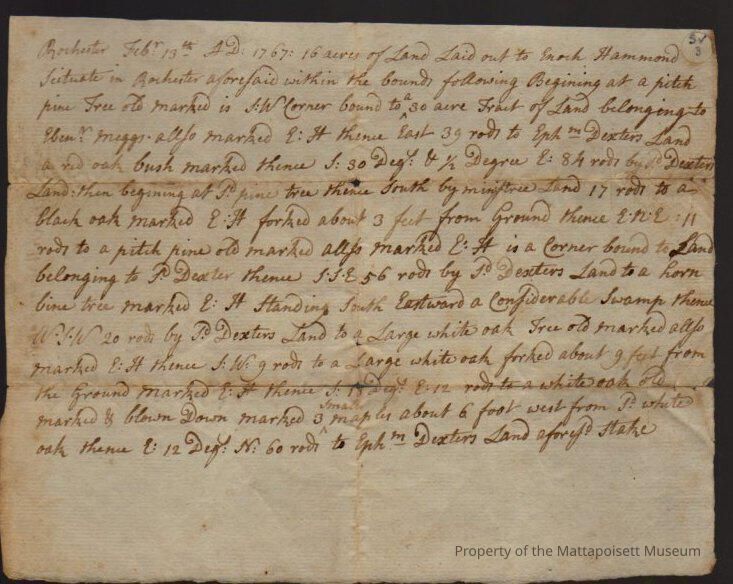 5V
3
Rochester Febr. 13th AD: 1767: 16 acres of Land Laid out to Enoch Hammond
Scituate in Rochester aforesaid within the bounds following Begining at a pitch
pine Tree old marked is S:W Corner bound to 30 acre Tract of Land belonging to
Ebenr. meggs allso marked E: H thence East 39 rods to Ephm Dexters Land
a red oak bush marked thence S: 30 Degs: & ½ Degree E: 84 rods by Sd Dexters
Land: then begining at Sd pine tree thence South by ministree Land 17 rods to a
black oak marked E: H forked about 3 feet from Ground thence E:N:E: 11
rods to a pitch pine old marked allso marked E: H is a Corner bound to Land
belonging to Sd Dexter thence S:S:E 56 rods by Sd Dexters Land to a horn
bine tree marked E: H Standing South Eastward a Considerable Swamp thence
W:S:W 20 rods by Sd Dexters Land to a Large white oak Tree old marked allso
marked E: H thence S:W: 9 rods to a Large white oak forked about 9 feet from
the Ground marked E: H thence S: Degs: E: 12 rods to a white oak old
marked & blown Down marked 3 Small maples about 6 foot west from Sd white
oak thence E: 12 Degs: N: 60 rods to Ephm Dexters Land aforesd Stake
Property of the Mattapoisett Museum